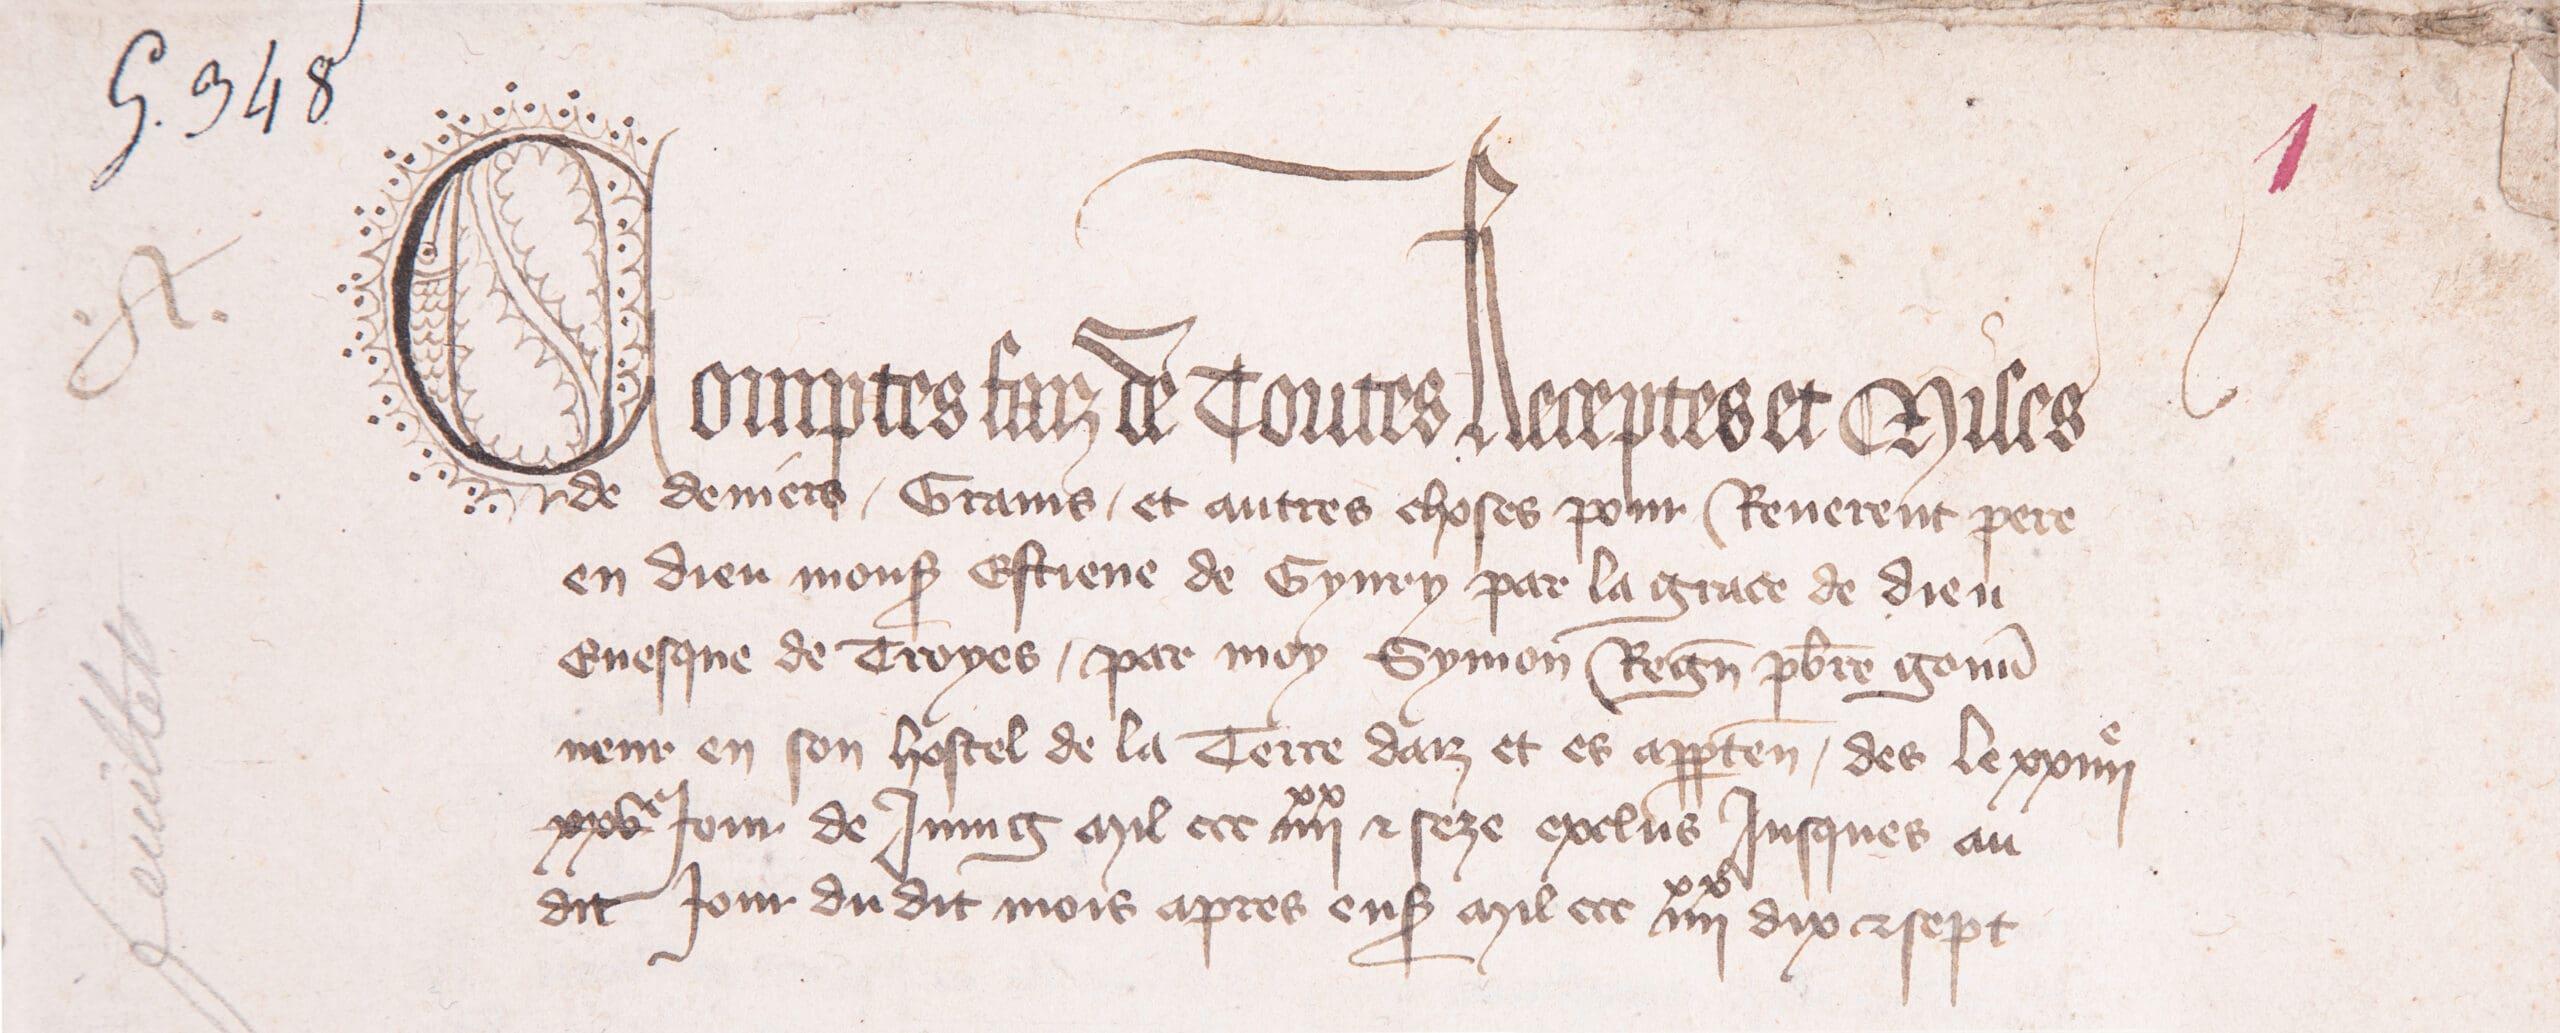 G. 348
1
Comptes faiz de Toutes Receptes et Mises
de deniers / Grains / et autres choses pour Reuerent pere
en dieu mons Estiene de Gyury par la grace de dieu
Euesque de Troyes / par moy Symon Regn pbre gouu
neur en son hostel de la Terre daiz et es apparten / des le xxiiiie
xxve Jour de Juing Mil ccc iiii xx & seze exclus Jusques au
dit Jour du dit mois apres ens Mil ccc iiii xx dix & sept
feuillet